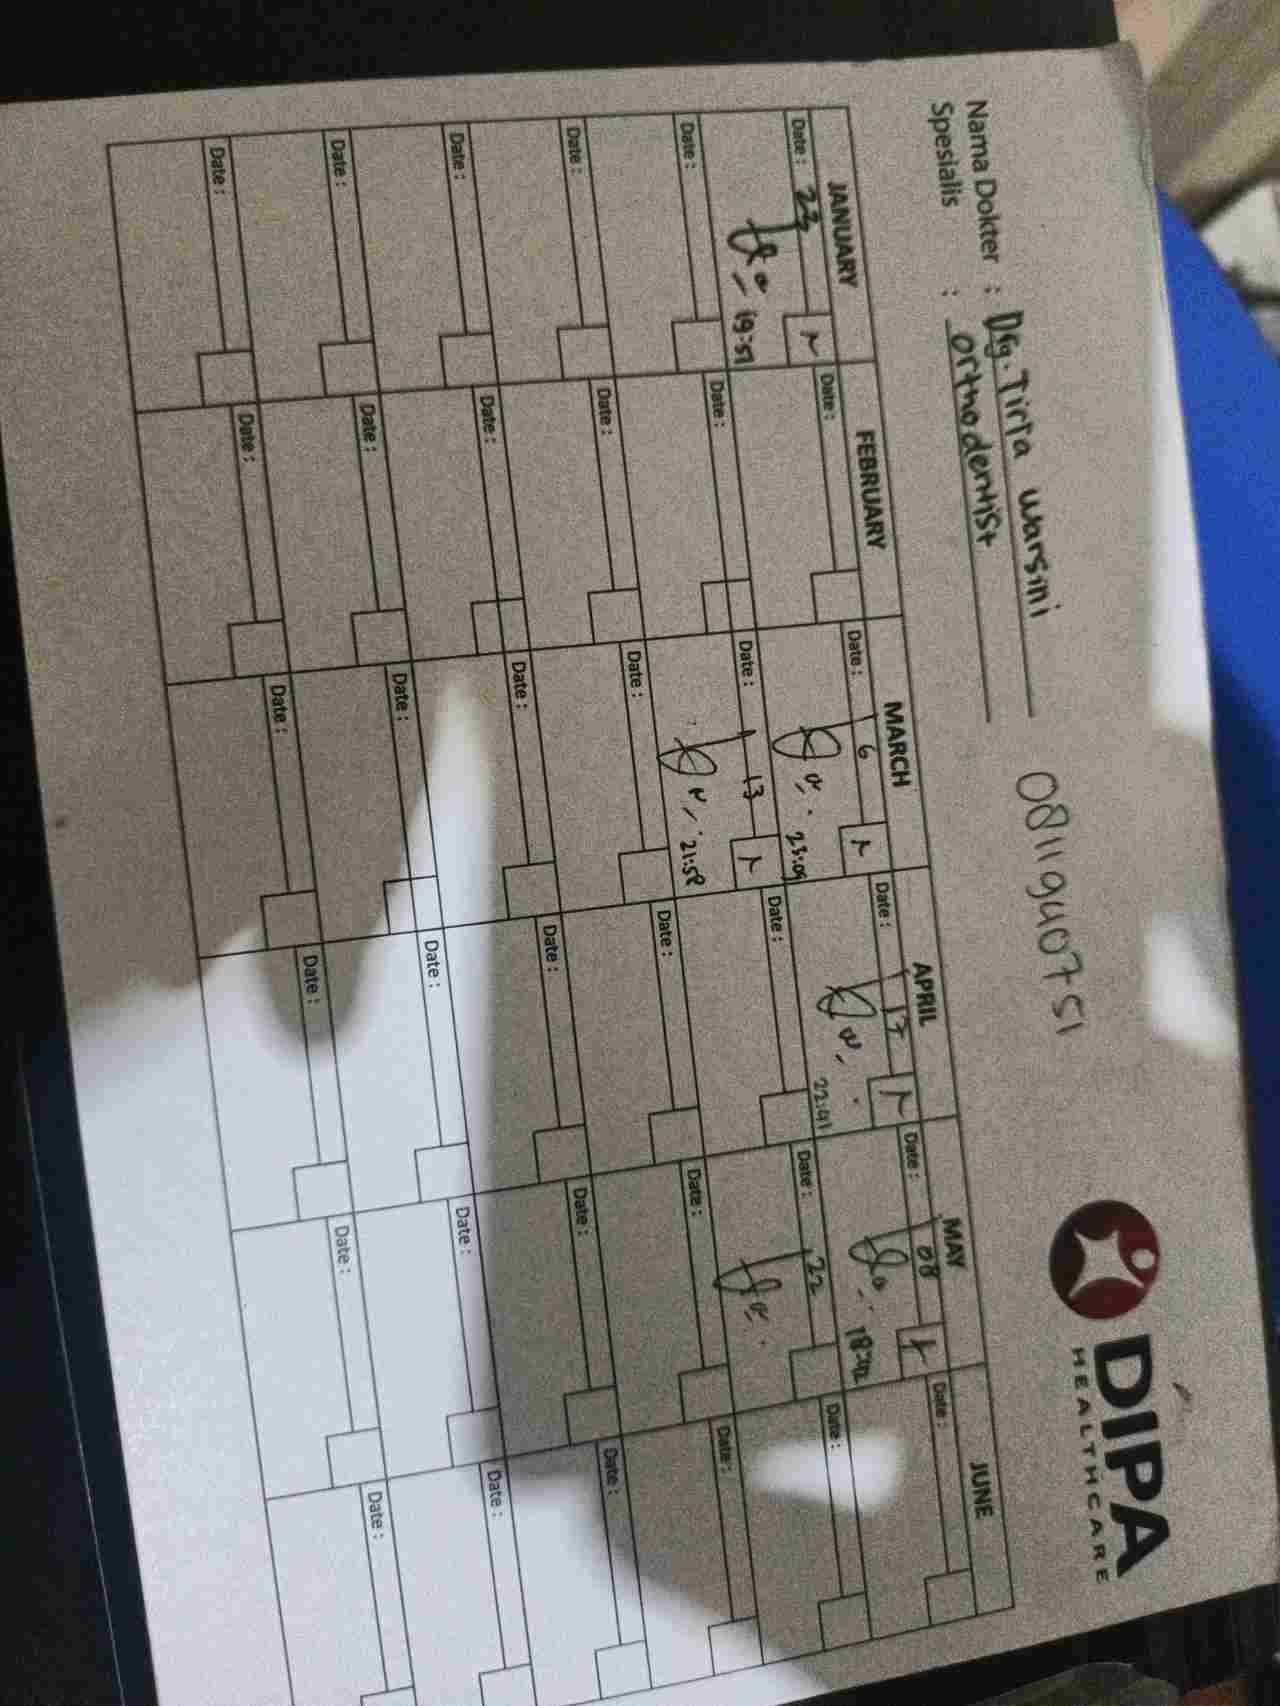 Nama Dokter : Drg. Tirta Warsini 0811940751
Spesialis : Orthodentist
DIPA
HEALTHCARE
JANUARY FEBRUARY MARCH APRIL MAY JUNE
Date : 23 Date : Date : 6 Date : 17 Date : 08 Date :
19:51 23:09 22:41 18:42
Date : Date : Date : 13 Date : Date : 22 Date :
21:58
Date : Date : Date : Date : Date : Date :
Date : Date : Date : Date : Date : Date :
Date : Date : Date : Date : Date : Date :
Date : Date : Date : Date : Date : Date :